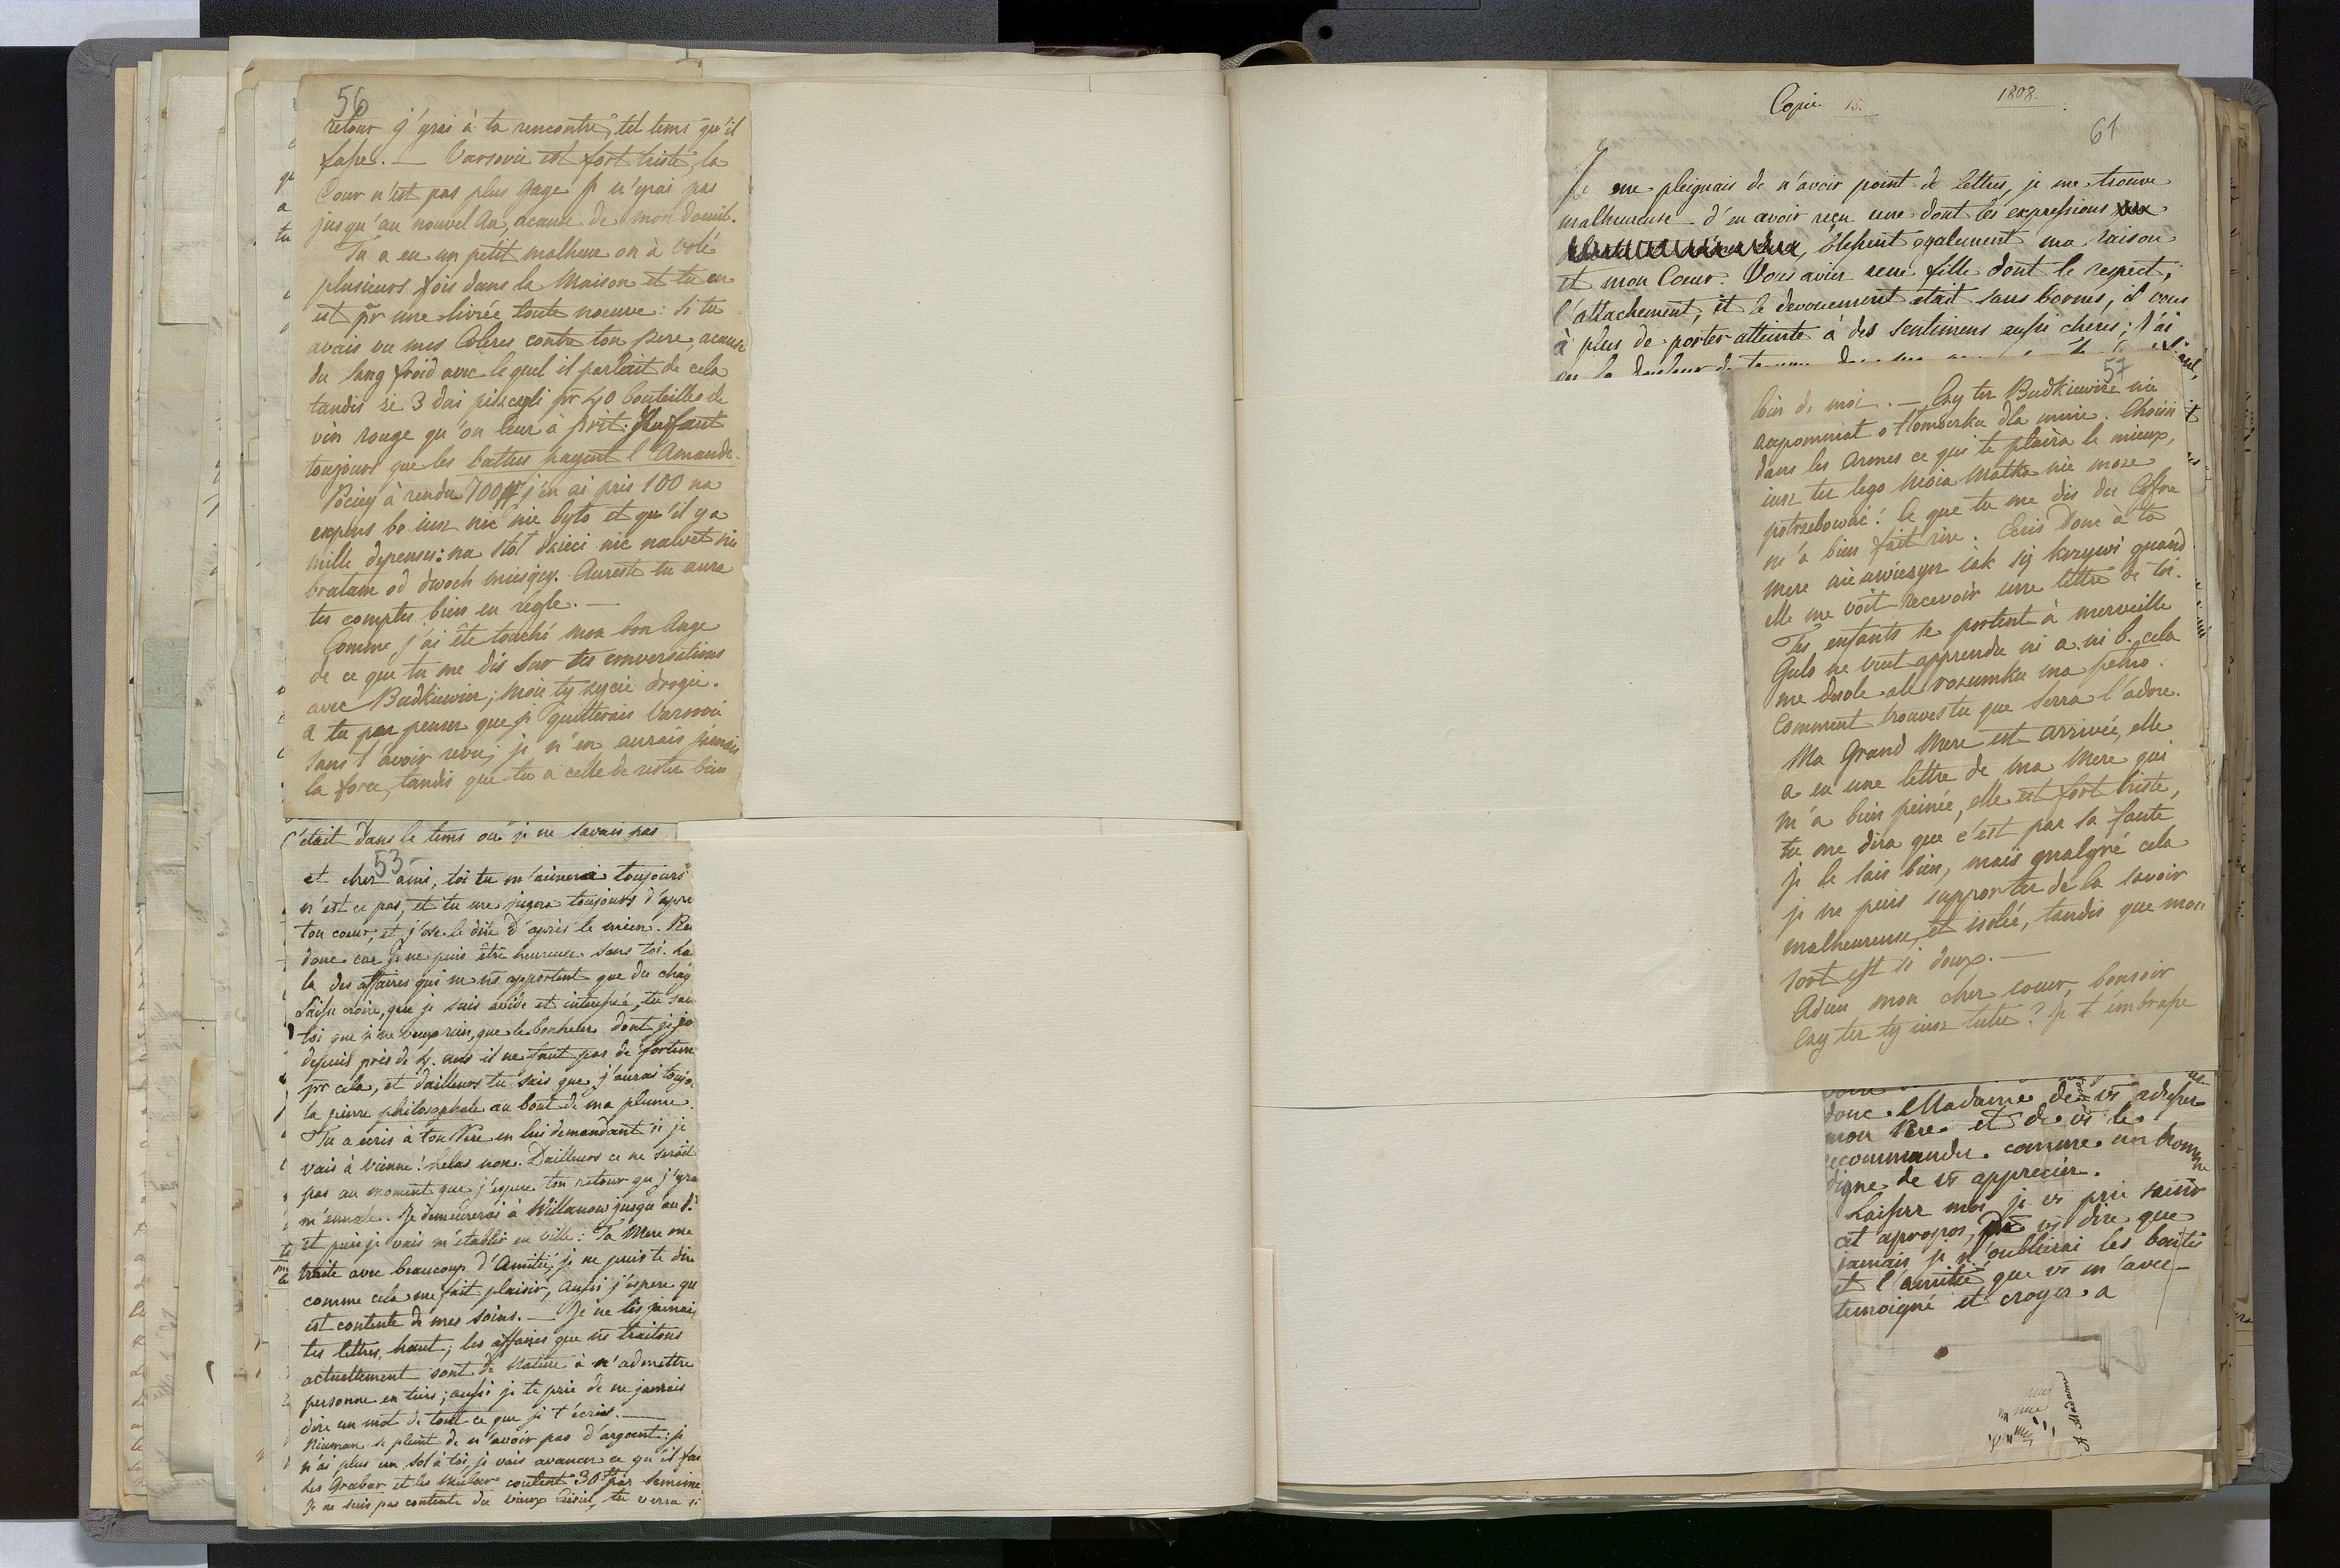 56
retour j'yrai à ta rencontre, tel tems qu'il
fasse. — Varsovie est fort triste, la
Cour n'est pas plus gaye je n'yrai pas
jusqu'au nouvel An, acause de mon doeuil.
Tu a eu un petit malheur on à volé
plusieurs fois dans la Maison et tu en
est pr une livrée toute noeuve: si tu
avais vu mes Coleres contre ton pere, acause
du sang froid avec lequel il parlait de cela
tandis że 3 dni piszczeli pr 40 bouteilles de
vin rouge qu'on leur à prit.
toujours que les battus payent l'Amande.
Pociey à rendu 700 # j'en ai pris 100 na
expens bo iusz nic nie było et qu'il y a
mille depenses: na stół dzieci nic nawet nie
brałam od dwoch miesięcy. Aureste tu aura
tes comptes bien en regle. —
Comme j'ai été touché mon bon Ange
de ce que tu me dis sur tes conversations
avec Budkiewicz; moie ty zycie drogie.
a tu pas penser que je quitterais Varsovie
sans t'avoir revu; je n'en aurais jamais
la force, tandis que tu a celle de rester bien
c'était dans le tems où je ne savais pas
53
et cher ami, toi tu m'aimera toujours
n'est ce pas, et tu me jugera toujours d'apre
ton coeur, et j'ose le dire d'après le mien.
donc car je ne puis être heureuse sans toi.
la des affaires qui ne ns apportent que du chag
Laisse croire, que je suis avide et interessée, tu sai
toi que je ne veux rien, que le bonheur dont je jo
depuis près de 4 ans il ne faut pas de fortune
pr cela, et d'ailleurs tu sais que j'aurai toujo
la pierre philosophale au bout de ma plume.
Tu a ecris à ton Pere en lui demandant si je
vais à Vienne! helas non. D'ailleurs ce ne serait
pas au moment que j'espere ton retour que j'yra
m'ennale. Je demeurerai à Willanow jusqu'au
et puis je vais m'etablir en ville: Ta Mere me
traite avec beaucoup d'Amitié, je ne puis te dire
comme cela me fait plaisir, aussi j'espere qu
est contente de mes soins. — Je ne lis jamais
tes lettres, haut; les affaires que ns traitons
actuellement sont de Nature à n'admettre
personne en tiers; aussi je te prie de ne jamais
dire un mot de tout ce que je t'écris. —
Nieuman se plaint de n'avoir pas d'argent: je
n'ai plus un sol à toi, je vais avancer ce qu'il fau
Les Grabar et les Mular coutent 30 # par semaine
Je ne suis pas contente du vieux tu verra si
Copie 15.
1808.
61
Je me pleignais de n'avoir point de lettres, je me trouve
malheureuse d'en avoir reçu une dont les expressions
blessent egalement ma raison
et mon Coeur. Vous aviez une fille dont le respect,
l'attachement, et le devouement etait sans bornes, il vous
à plus de porter atteinte à des sentimens aussi chéris; j'ai
57
loin de moi. — Czy tes Budkiewicz nie
zapomniał o tłomoczku dla mnie. Choisis
dans les Armes ce qui te plaira le mieux,
iusz tes tego Moia Matka nie moze
potrzebować! Ce que tu me dis du Coffre
m'a bien fait rire. Ecris donc à ta
mere nie uwierzysz iak się krzywi quand
elle me voit recevoir une lettre de toi.
Tes enfants se portent à merveille
Gucio ne veut apprendre ni a. ni b. cela
me desole ale rozumku ma pełno.
Comment trouves tu que Serra l'adore.
Ma Grand Mere est arrivée, elle
a eu une lettre de ma Mere qui
m'a bien peinée, elle est fort triste,
tu me dira que c'est par sa faute
je le sais bien, mais malgré cela
je ne puis supporter de la savoir
malheureuse, et isolée, tandis que mon
sort est si doux. —
Adieu mon cher coeur, bonsoir
Czy tes ty iusz lulu? Je t'embrasse
donc Madame de vs adresser
mon Pere et de vs le
recommander comme un homme
digne de vs apprecier.
Laissez moi je vs prie saisir
cet apropos, vs dire que
jamais je n'oublierai les bontés
et l'amitié que vs m'avez
temoigné et croyez a